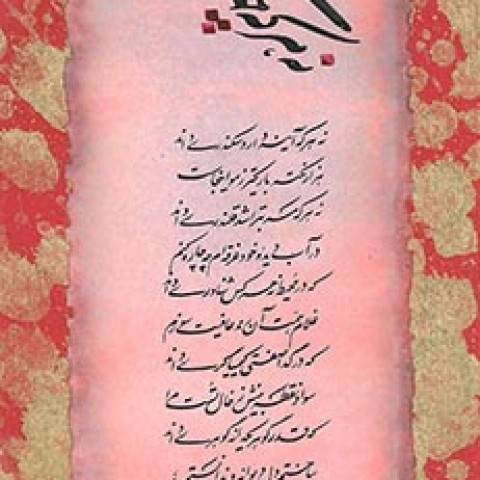 نه هر که آینه دارد سکندری داند
هزار نکته باریکتر ز مو اینجاست
نه هر که سر بتراشد قلندری داند
در آب دیده خود غرقه‌ام چه چاره کنم
که در محیط نه هر کس شناوری داند
غلام همت آن رند عافیت سوزم
که در گدا صفتی کیمیاگری داند
سواد نقطه بینش ز خال تست مرا
که قدر گوهر یکدانه گوهری داند
بباختم دل دیوانه و ندانستم